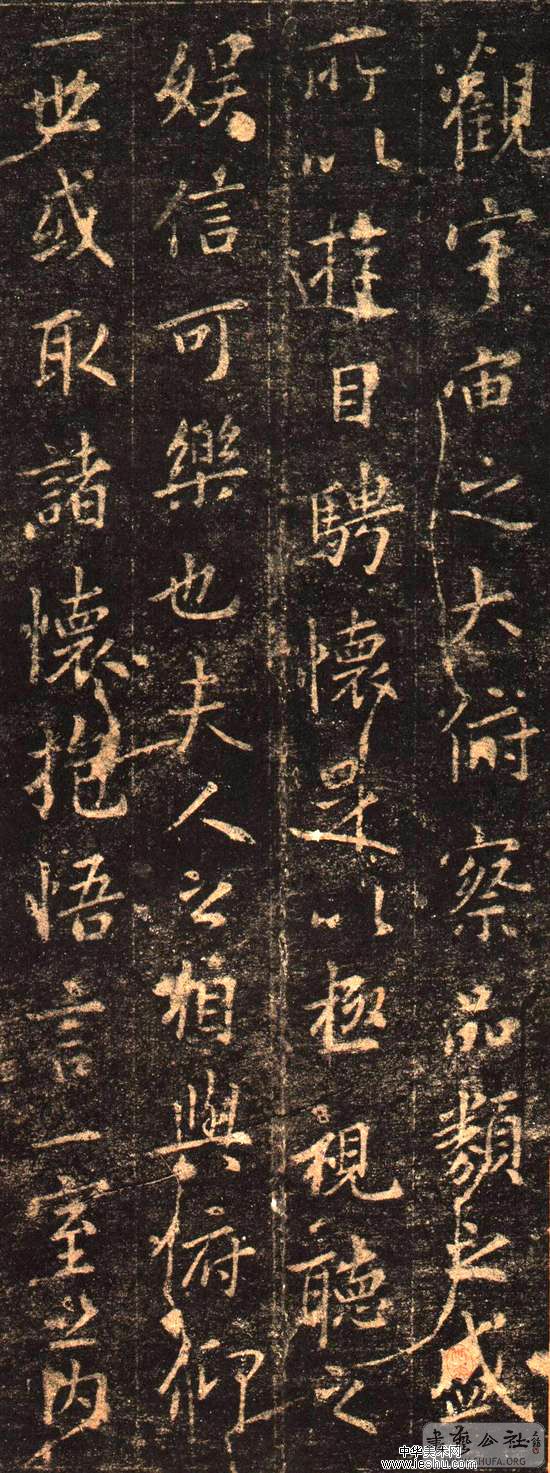 觀宇宙之大俯察品類之盛
所以遊目騁懷足以極視聽之
娛信可樂也夫人之相與俯仰
一世或取諸懷抱悟言一室之内
书艺公社
SHUFA.ORG
中华美术网
www.leshu.com